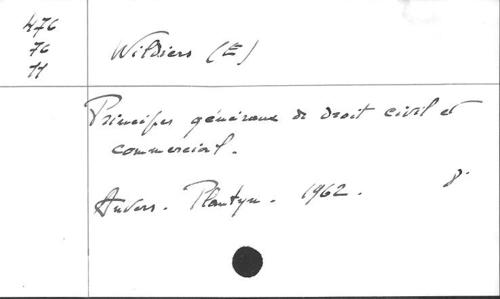 476
76
11
Wildiers (E)
Principes généraux de droit civil et
commercial.
Anvers. Plantyn. 1962. 8°